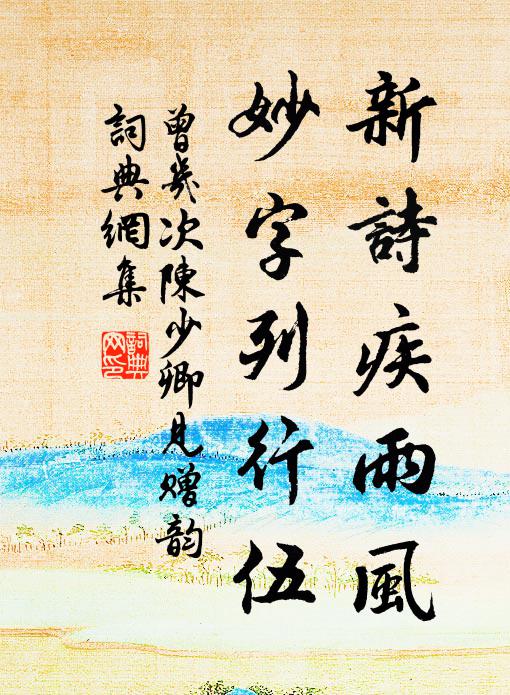 新詩疾雨風
妙字列行伍
曾幾次陳少卿見贈韵
詞典網集
詞典網印